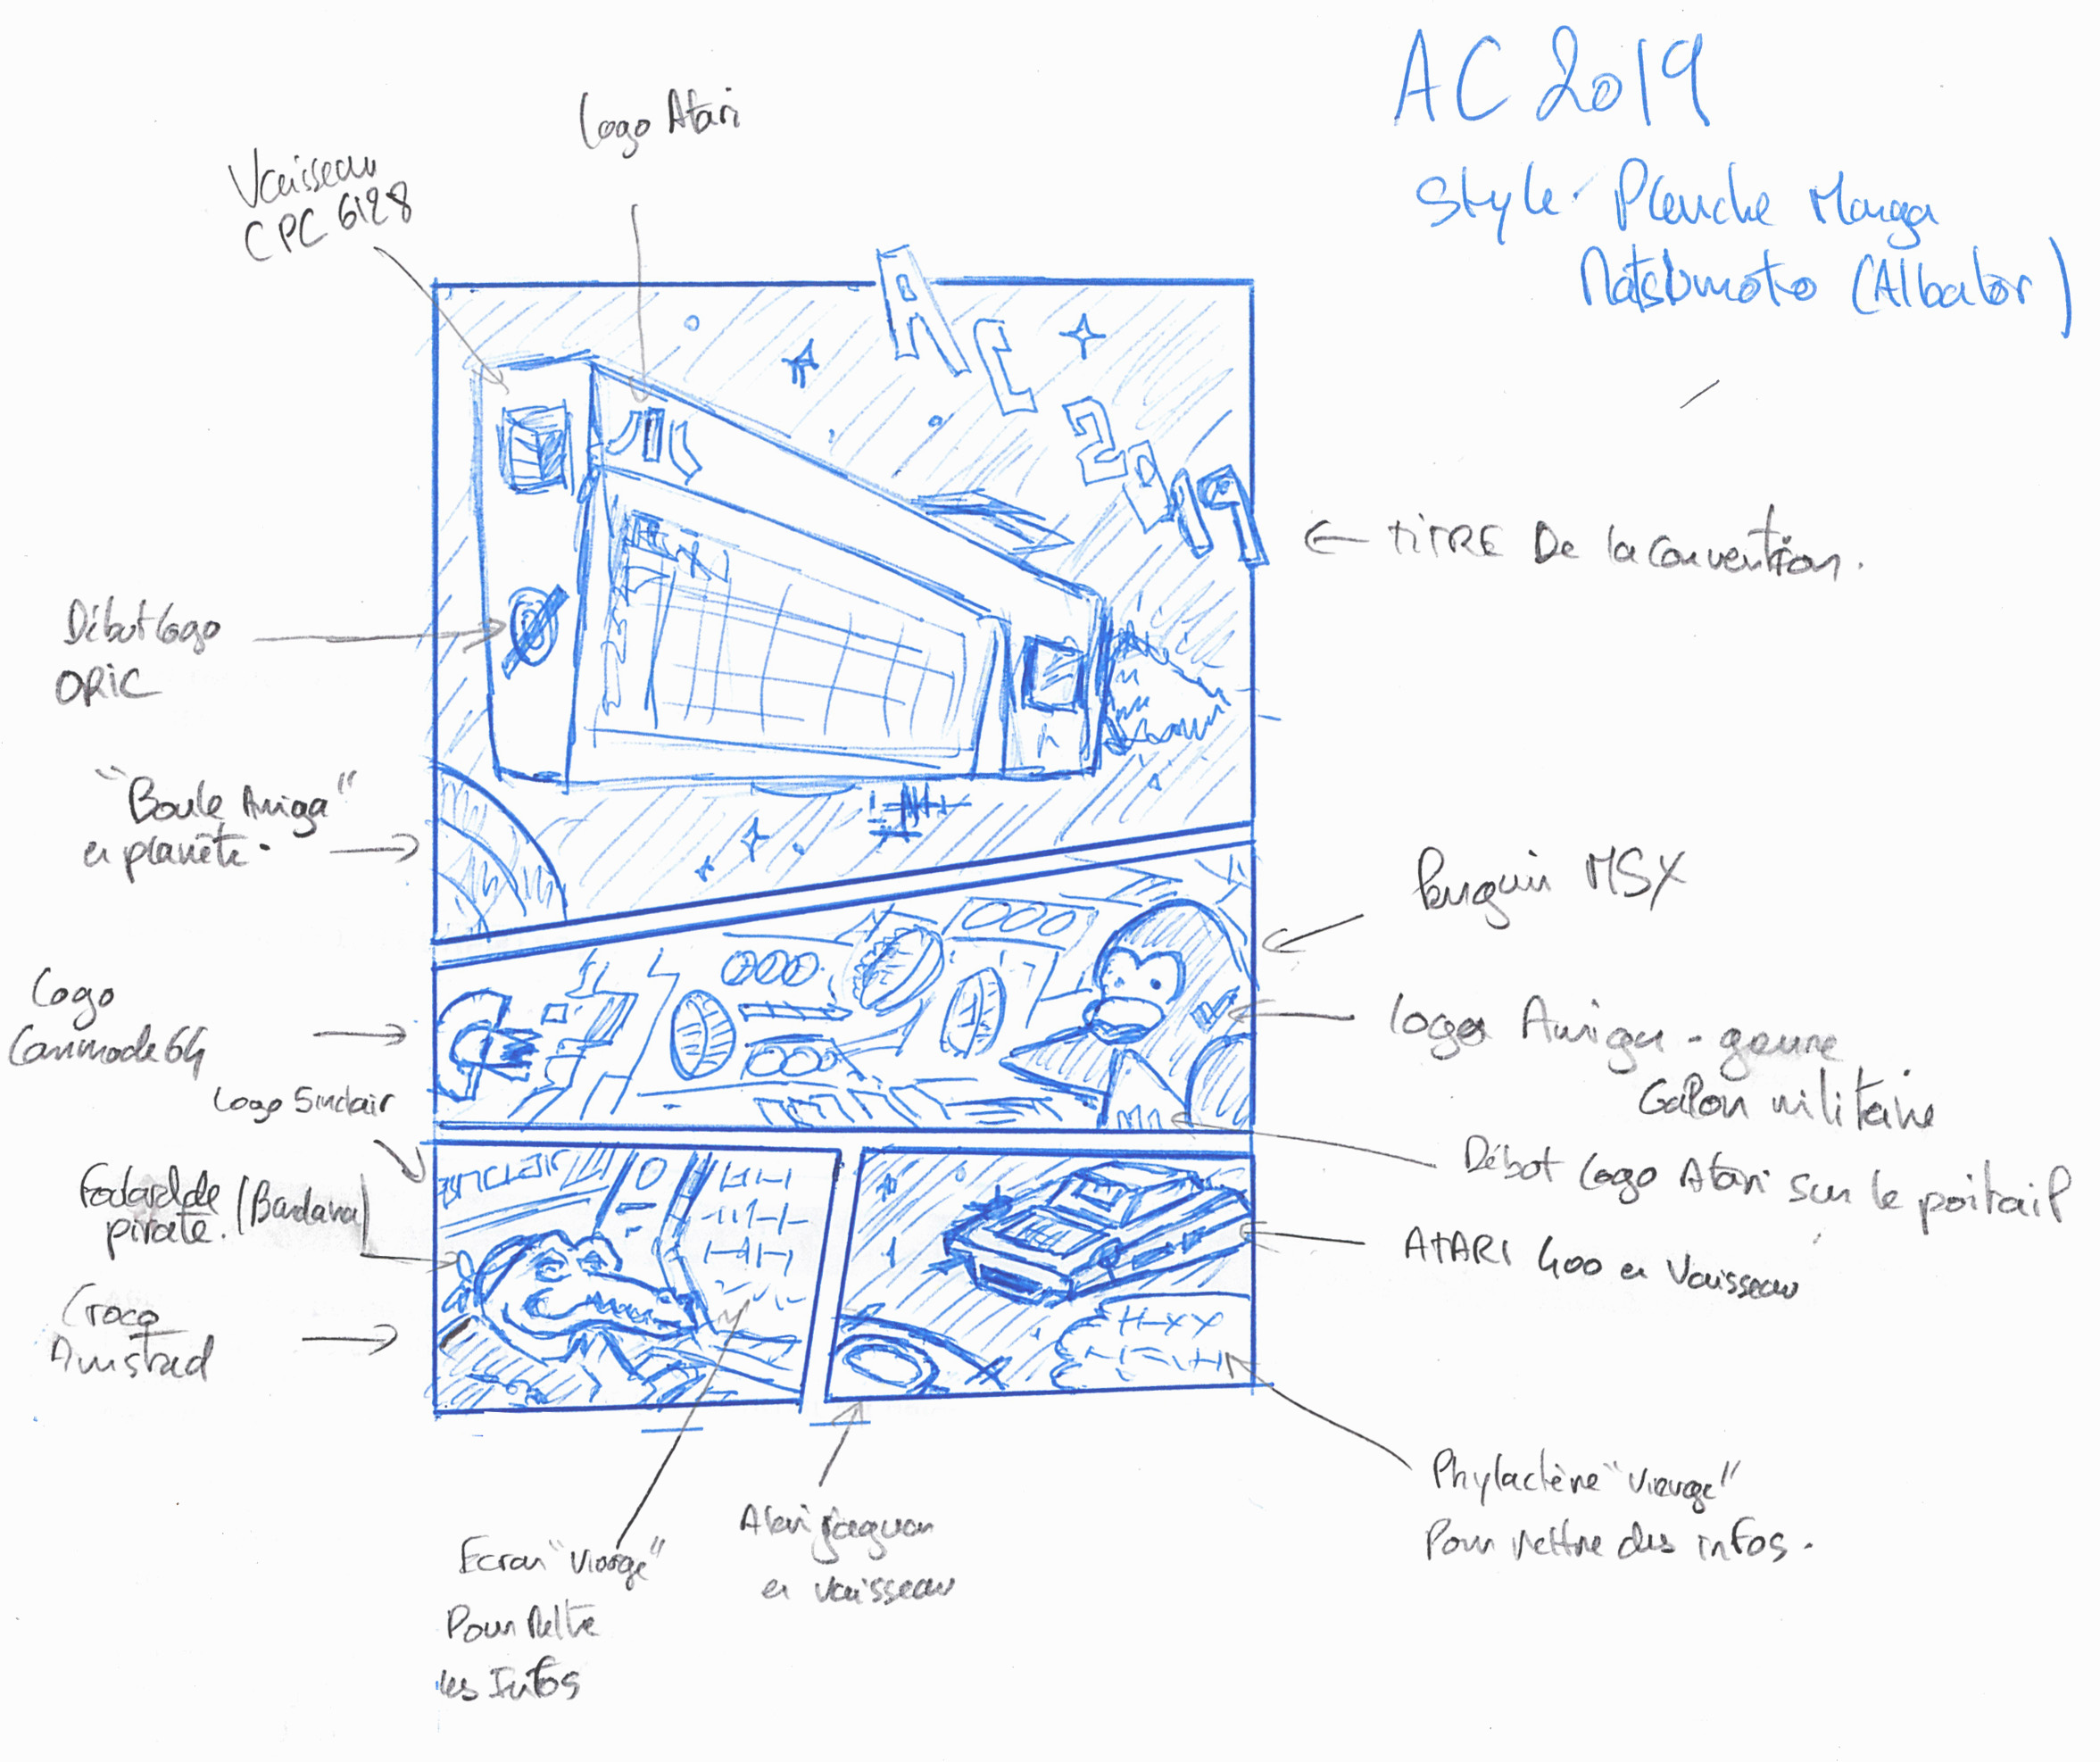 AC 2019
Style: Planche Manga
Matsumoto (Albator)
Logo Atari
Vaisseau
CPC 6128
AC 2019
← TITRE De la Convention.
Début logo
ORIC
"Boule Amiga"
en planète.
Pinguin MSX
Logo
Commode 64
Logo Amiga - genre
Galon militaire
Logo Sinclair
Début Logo Atari sur le poitail
Foulard de
pirate. (Bandana)
sinclair
ATARI 400 en Vaisseau
Croco
Amstrad
Phylactère "Vierge"
Pour Mettre des infos.
Atari Jaguar
en vaisseau
Ecran "Vierge"
Pour Mettre
les Infos